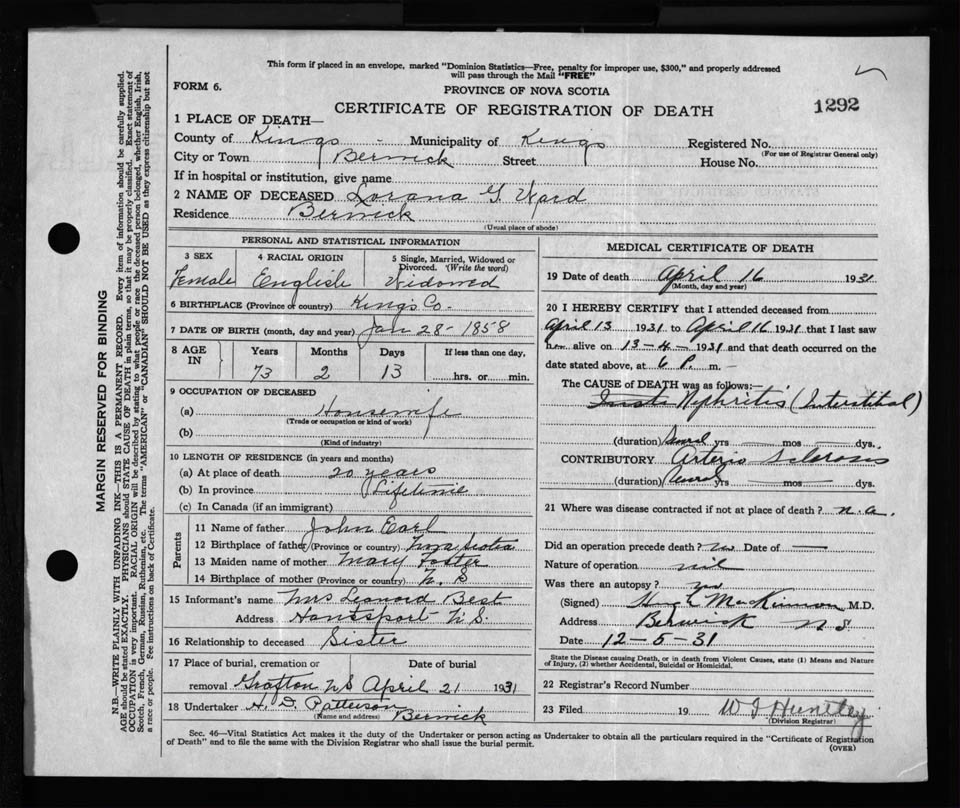 This form if placed in an envelope, marked "Dominion Statistics—Free, penalty for improper use, $300," and properly addressed
will pass through the Mail "FREE"
FORM 6.
PROVINCE OF NOVA SCOTIA
CERTIFICATE OF REGISTRATION OF DEATH
1292
1 PLACE OF DEATH—
County of Kings - Municipality of Kings Registered No.
(For use of Registrar General only)
City or Town Berwick Street House No.
If in hospital or institution, give name
2 NAME OF DECEASED Lorana G. Ward
Residence Berwick
(Usual place of abode)
MARGIN RESERVED FOR BINDING
N.B.—WRITE PLAINLY WITH UNFADING INK—THIS IS A PERMANENT RECORD. Every item of information should be carefully supplied.
AGE should be stated EXACTLY. PHYSICIANS should STATE CAUSE OF DEATH in plain terms, so that it may be properly classified. Exact statement of
OCCUPATION is very important. RACIAL ORIGIN will be described by stating to what people or race the deceased person belonged, whether English, Irish,
Scotch, French, German, Russian, Ruthenian, etc. The terms "AMERICAN" or "CANADIAN" SHOULD NOT BE USED as they express citizenship but not
a race or people. See instructions on back of Certificate.
PERSONAL AND STATISTICAL INFORMATION
3 SEX 4 RACIAL ORIGIN 5 Single, Married, Widowed or
Divorced. (Write the word)
Female English Widowed
6 BIRTHPLACE (Province or country) Kings Co.
7 DATE OF BIRTH (month, day and year) Jan 28 - 1858
8 AGE IN Years Months Days If less than one day,
73 2 13 hrs. or min.
9 OCCUPATION OF DECEASED
(a) Housewife
(Trade or occupation or kind of work)
(b)
(Kind of industry)
10 LENGTH OF RESIDENCE (in years and months)
(a) At place of death 20 years
(b) In province Lifetime
(c) In Canada (if an immigrant)
Parents
11 Name of father John Earl
12 Birthplace of father (Province or country) Nova Scotia
13 Maiden name of mother Mary Foster
14 Birthplace of mother (Province or country) N. S
15 Informant's name Mrs Leonard Best
Address Hantsport N S.
16 Relationship to deceased Sister
17 Place of burial, cremation or Date of burial
removal Grafton N S April 21 1931
18 Undertaker H. D. Patterson
(Name and address) Berwick
MEDICAL CERTIFICATE OF DEATH
19 Date of death April 16 1931
(Month, day and year)
20 I HEREBY CERTIFY that I attended deceased from
April 13 1931 to April 16 1931 that I last saw
h alive on 13 - 4 - 1931 and that death occurred on the
date stated above, at 6 P. m. -
The CAUSE of DEATH was as follows:—
Nephritis (Interstitial)
(duration) Several yrs — mos — dys.
CONTRIBUTORY Arterio Sclerosis
(duration) Several yrs — mos — dys.
21 Where was disease contracted if not at place of death? n. a.
Did an operation precede death? no Date of —
Nature of operation nil
Was there an autopsy? no
(Signed) Hugh McKinnon M.D.
Address Berwick N S
Date 12 - 5 - 31
State the Disease causing Death, or in death from Violent Causes, state (1) Means and Nature
of Injury, (2) whether Accidental, Suicidal or Homicidal.
22 Registrar's Record Number
23 Filed 19 W J Huntley
(Division Registrar)
Sec. 46—Vital Statistics Act makes it the duty of the Undertaker or person acting as Undertaker to obtain all the particulars required in the "Certificate of Registration
of Death" and to file the same with the Division Registrar who shall issue the burial permit.
(OVER)